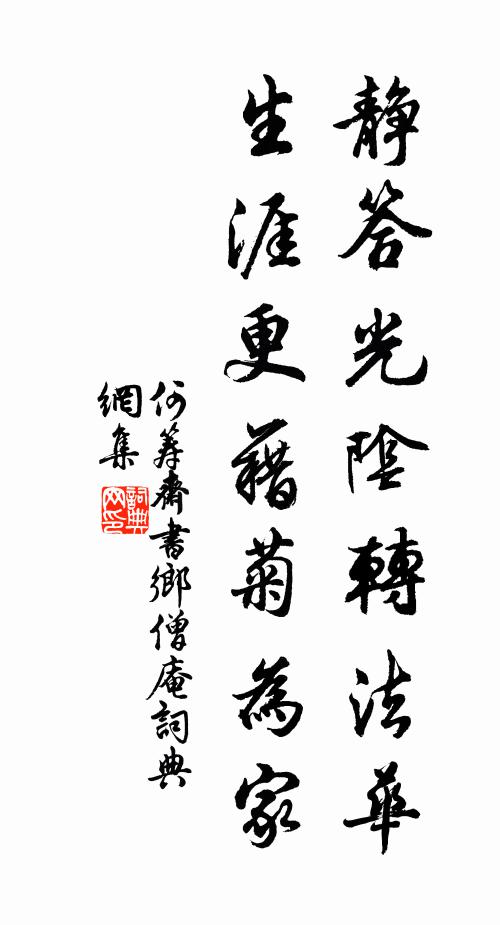 靜答光陰轉法華
生涯更藉菊為家
何筹齋書鄉僧庵詞典
網集
詞典
网印